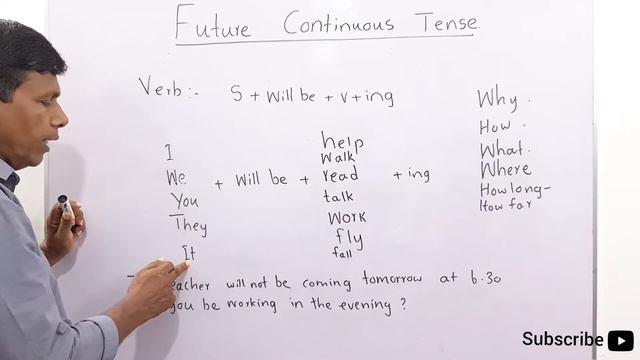 Future Continuous Tense
Verb:- S + Will be + V + ing
I
We
You
They
It
+ Will be +
help
Walk
read
talk
Work
fly
fall
+ ing
Why.
How.
What.
Where
How long-
How far
eacher will not be coming tomorrow at 6.30
you be working in the evening?
Subscribe